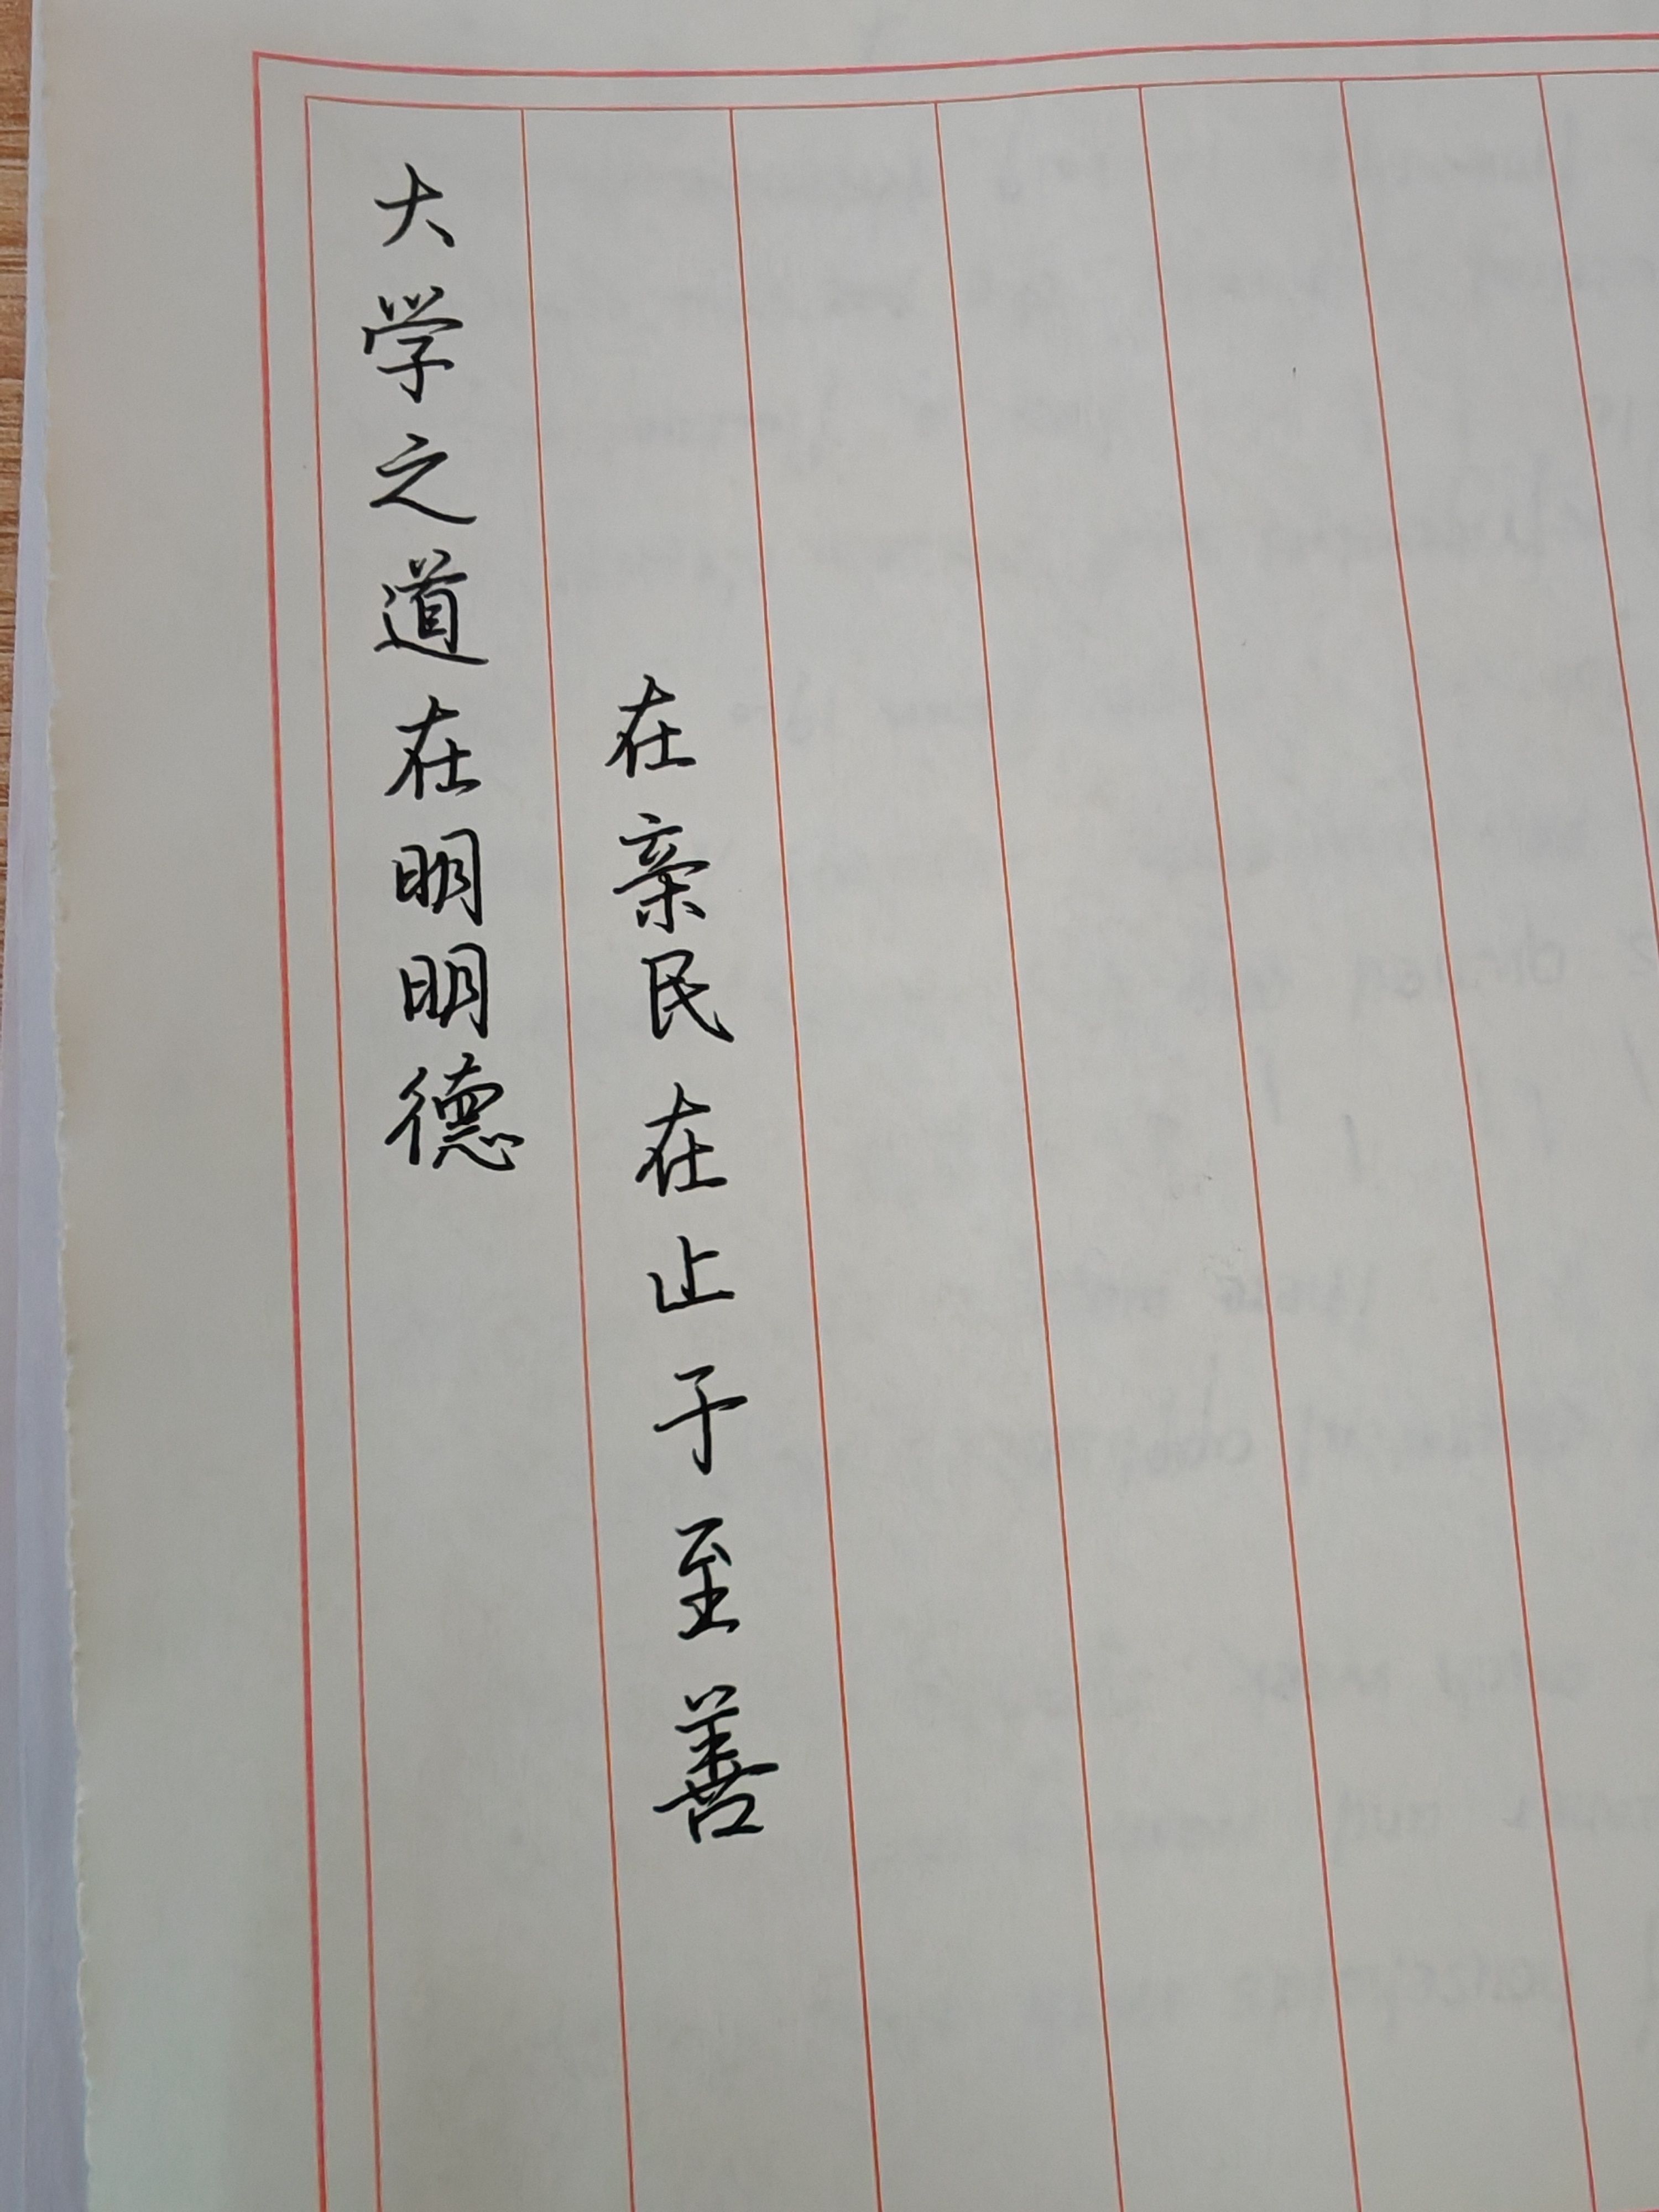 大学之道在明明德
在亲民在止于至善